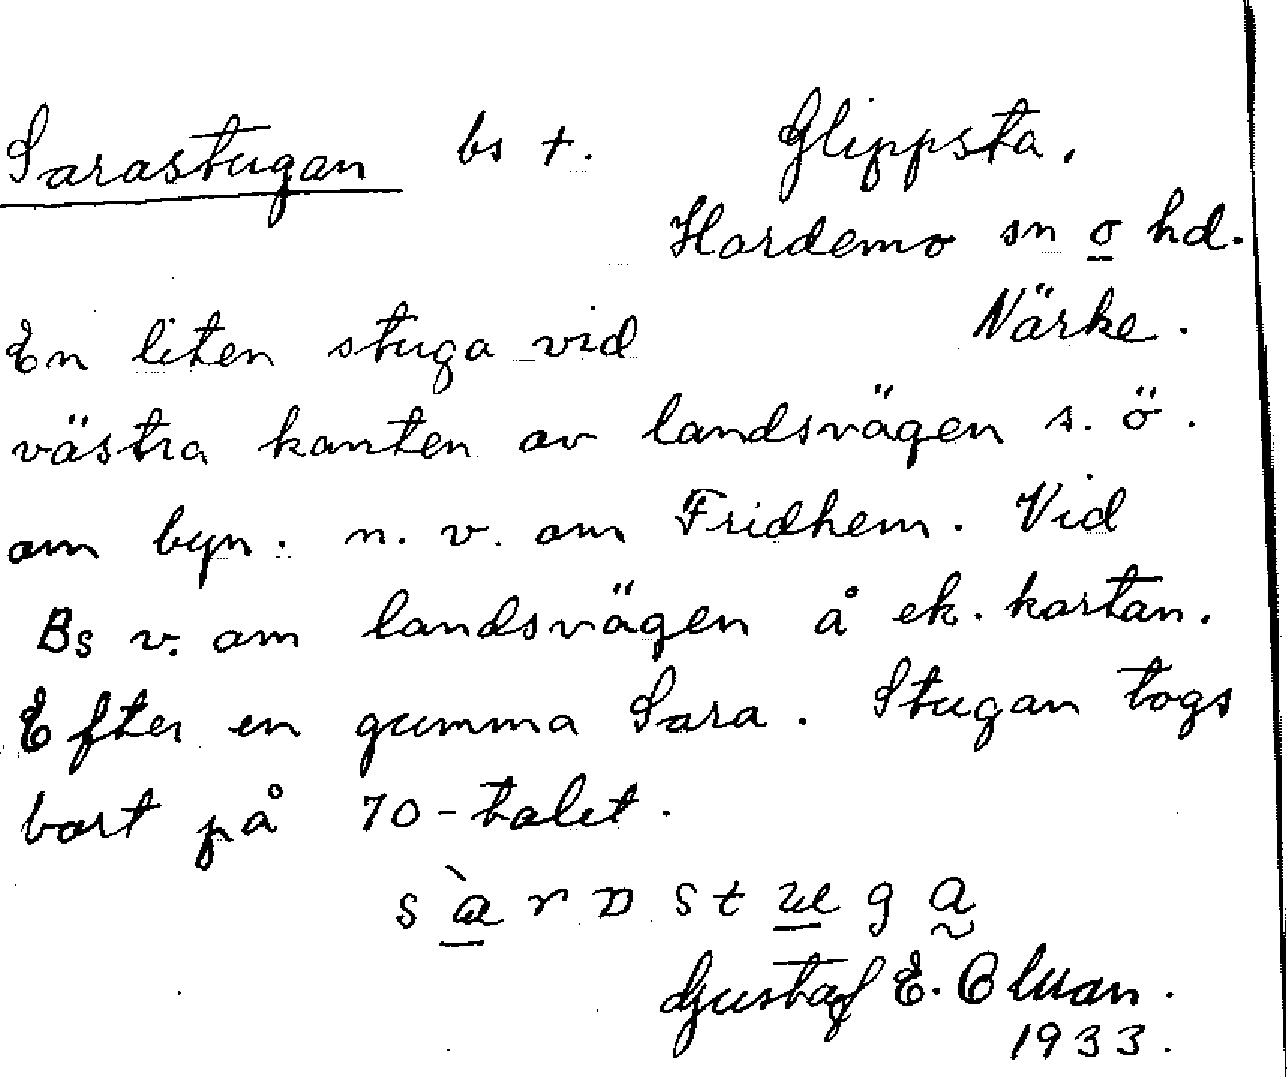 Sarastugan bs +. Glippsta.
Hardemo sn o hd.
Närke.
En liten stuga vid
västra kanten av landsvägen s. ö.
om byn. n. v. om Fridhem. Vid
Bs v. om landsvägen å ek. kartan.
Efter en gumma Sara. Stugan togs
bort på 70-talet.
Gustaf E.
1933.